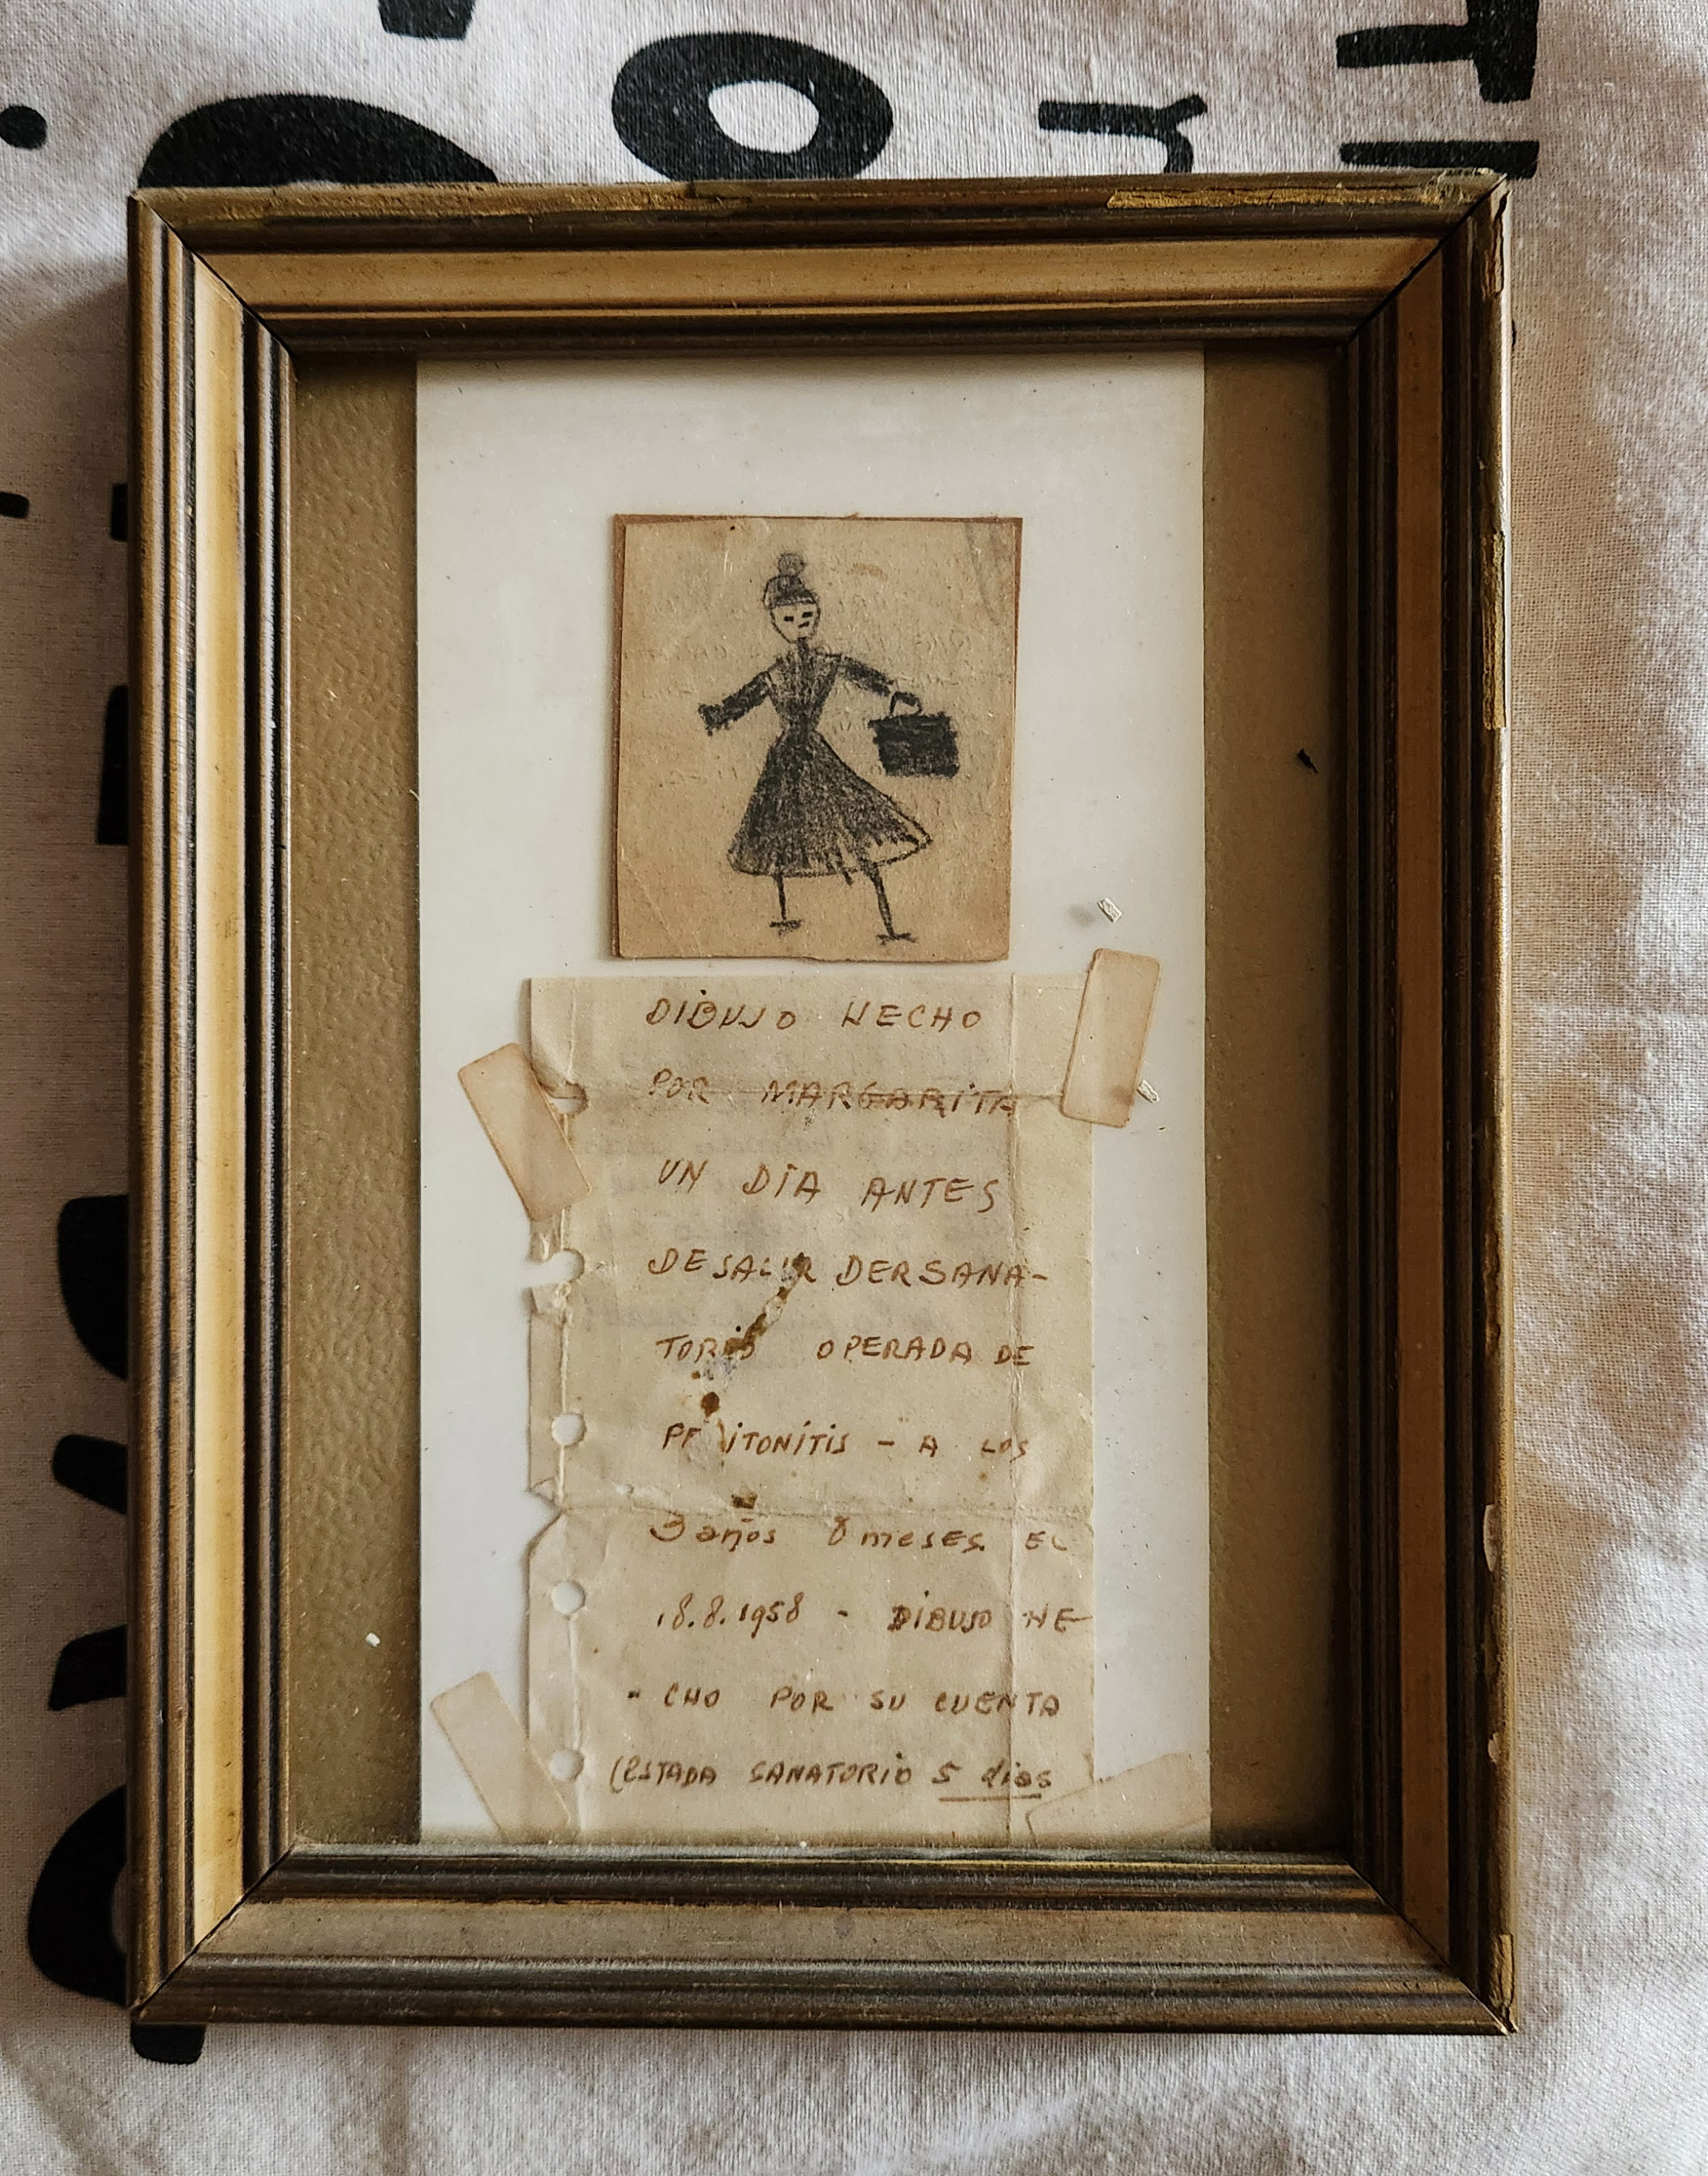 DIBUJO HECHO
POR MARGARITA
UN DÍA ANTES
DE SALIR DER SANA-
TORIO OPERADA DE
PERITONITIS - A LOS
3 años 8 meses EL
18.8.1958 - DIBUJO HE-
- CHO POR SU CUENTA
(ESTADA SANATORIO 5 dias